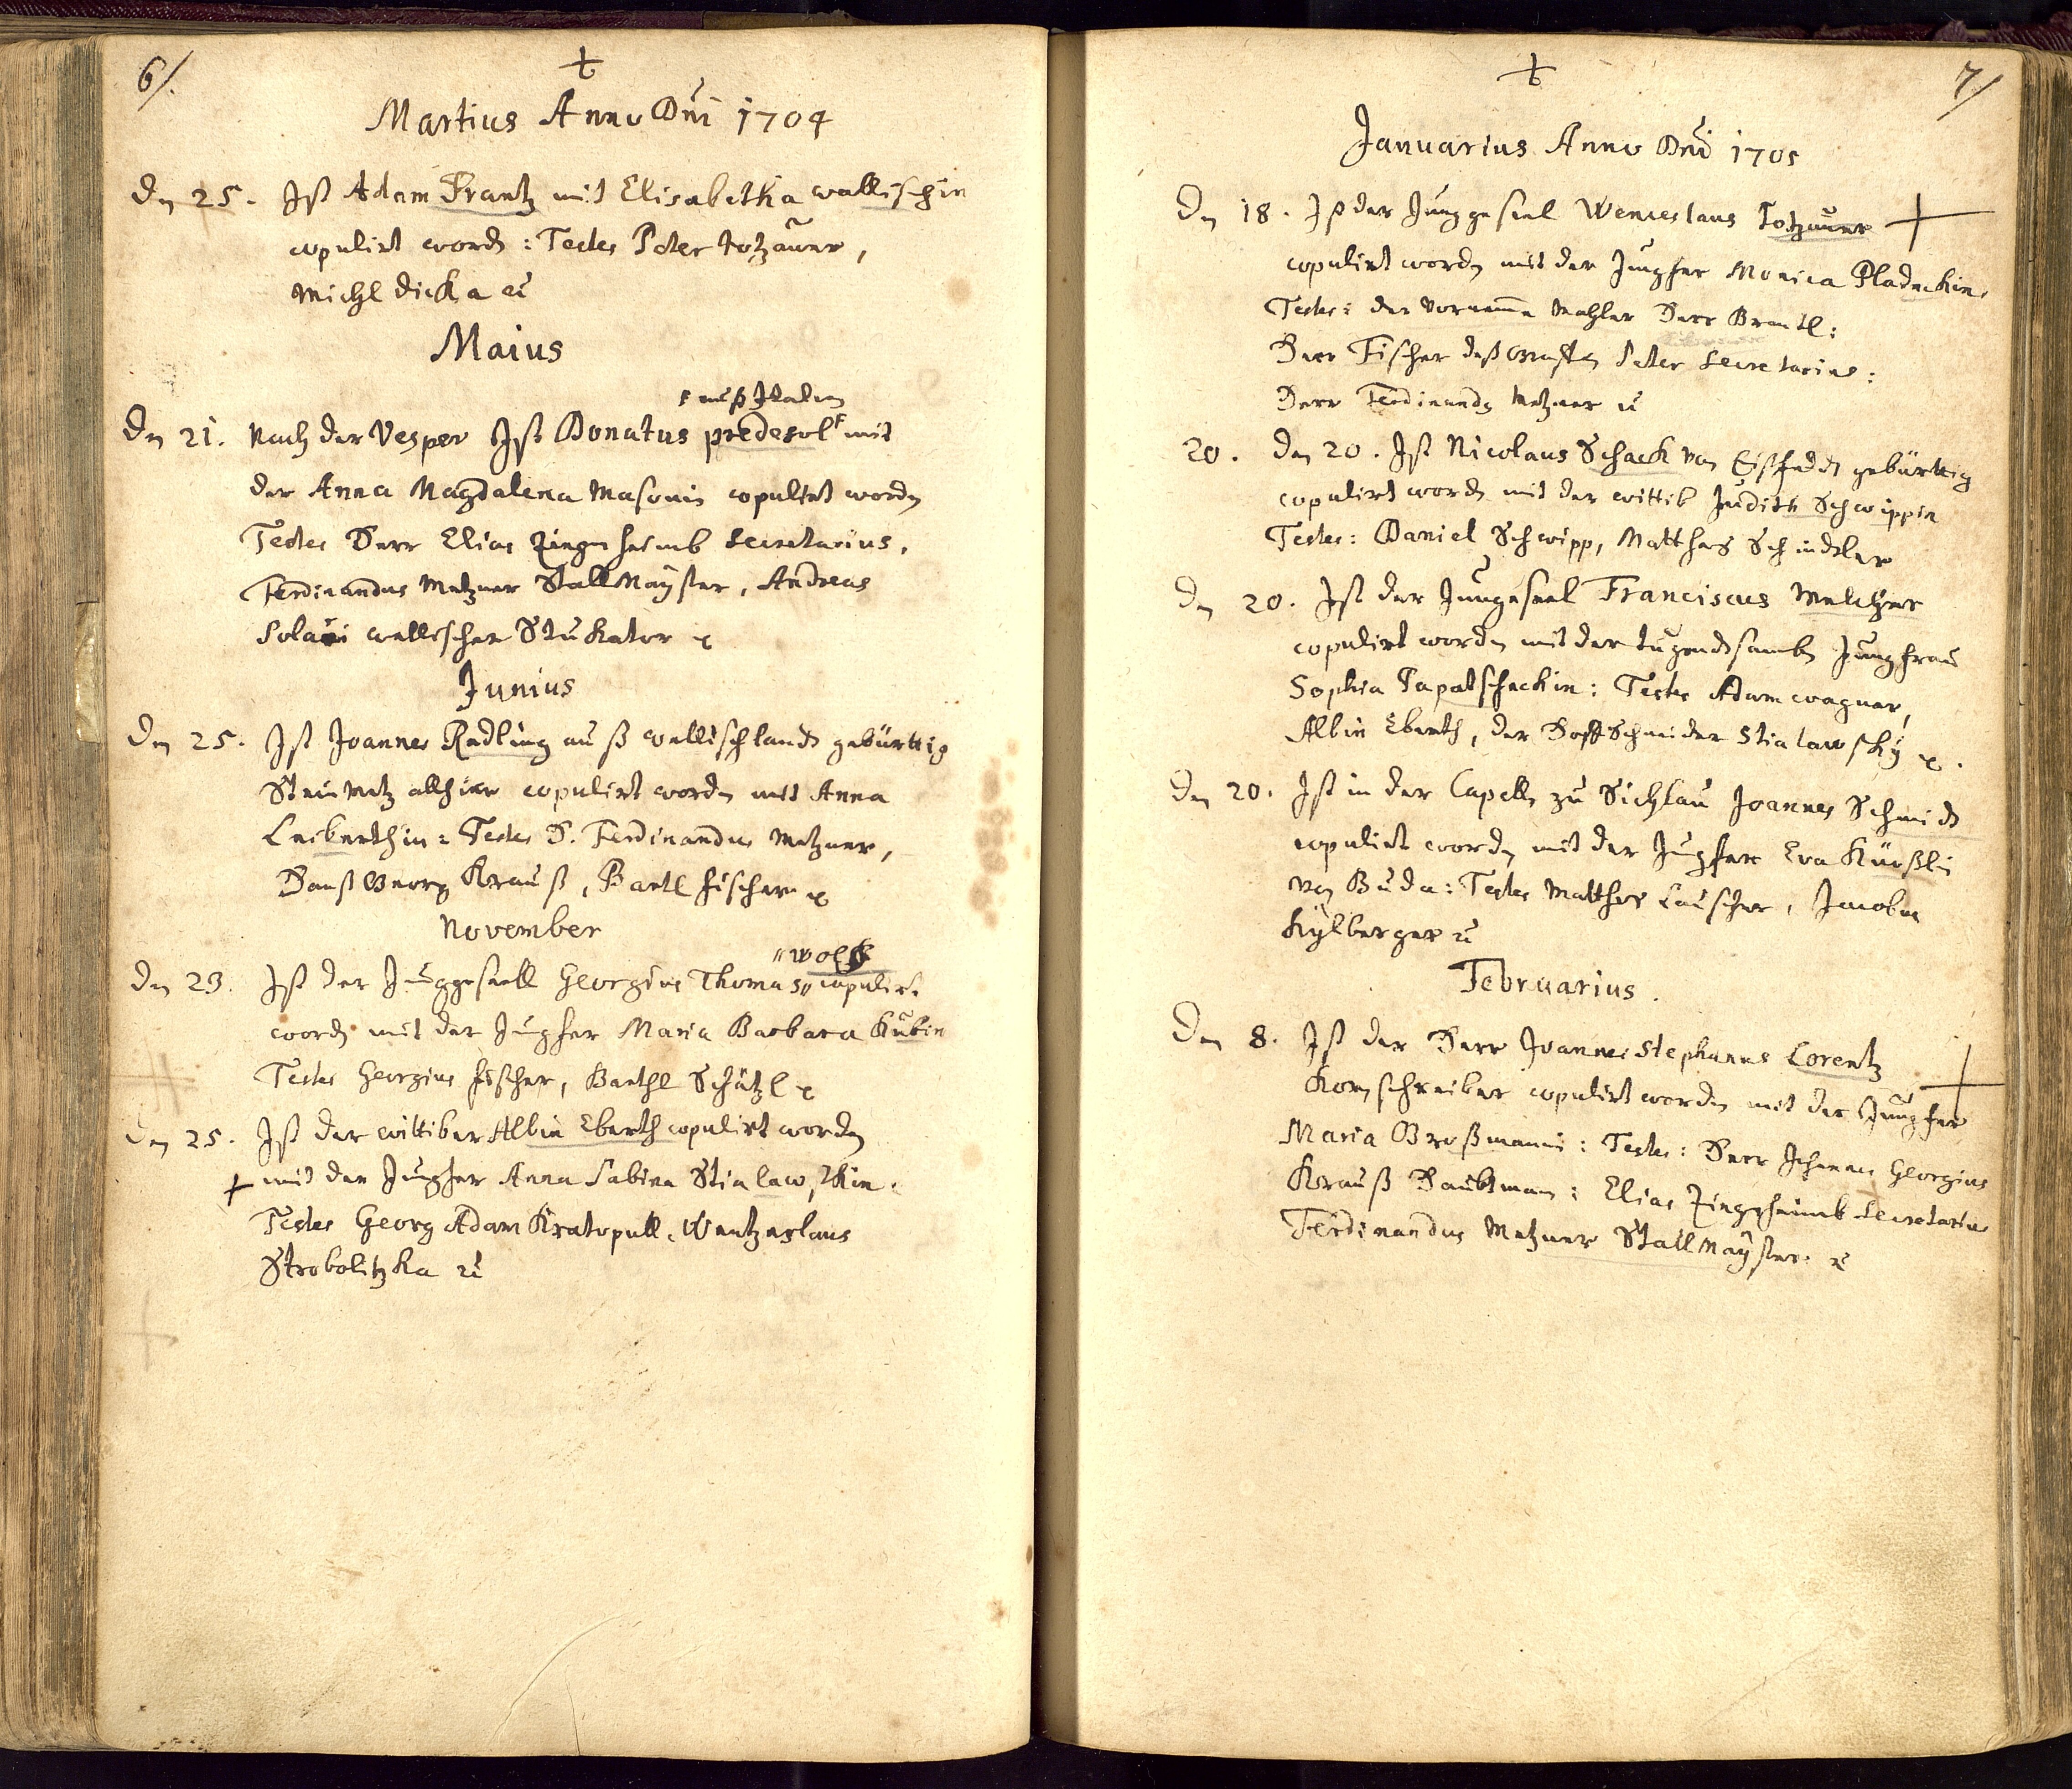 6/.
Martius Anno Dni 1704
Den 25. Ist Adam Frantz mit Elisabetha wallischin
copulirt word: Testes Peter totzauer,
Michl dicka
Maius
auß Italien
Den 21. Nach der Vesper Ist Donatus predesol mit
der Anna Magdalena Masonin copulirt worden
Testes Herr Elias Zingerheimb Secretarius,
Ferdinandus Metzner StallMayster, Andreas
wellischer Stukator
Junius
Den 25. Ist Joannes Radling auß wellischlandt gebürttig
Steinmetz allhier copulirt worden mit Anna
Leiberthin: Testes H. Ferdinandus Metzner,
Hanß Georg Krauß, Bartl fischer
November
wolff
Den 23. Ist der Junggesell Georgius Thomas copulirt
word mit der Jungfer Maria Barbara Kubin
Testes Georgius fischer, Barthl Schätzl
Den 25. Ist der wittiber Albin Eberth copulirt worden
mit der Jungfer Anna Sabina Stialawskin
Testes Georg Adam Kratopull, Wentzeslaus
Strobolitzka
7/
Januarius Anno Dni 1705
Den 18. Ist der Junggesel Wenceslaus Totzauer
copulirt worden mit der Jungfer Monica
Testes: der Vorneme Mahler Herr Brantl:
Herr Fischer deß Peter Secretarius:
Herr Ferdinandg Metzner
20. Den 20. Ist Nicolaus Schack von gebürttig
copulirt word mit der wittib Judith Schwippin
Testes: Daniel Schwipp, Matthes Schindtler
Den 20. Ist der Jungesel Franciscus Melcher
copulirt worden mit der tugendsamben Jungfrau
Sophia Papatscheckin: Testes Adam wagner,
Albin Eberth, der Hoff Schneider Stialawsky
Den 20. Ist in der Capelln zu Sichlau Joannes Schmidt
copulirt worden mit der Jungfer Eva Kürßlin
von Buda: Testes Matthes Lauscher, Jacobus
Kylberger
Februarius.
Den 8. Ist der Herr Joannes Stephanus Lorentz
Kornschreiber copulirt worden mit der Jungfer
Maria Großmanin: Testes: Herr Johannes Georgius
Krauß Haubtman: Elias Zingerheimb Secretarius
Ferdinandus Metzner StallMayster